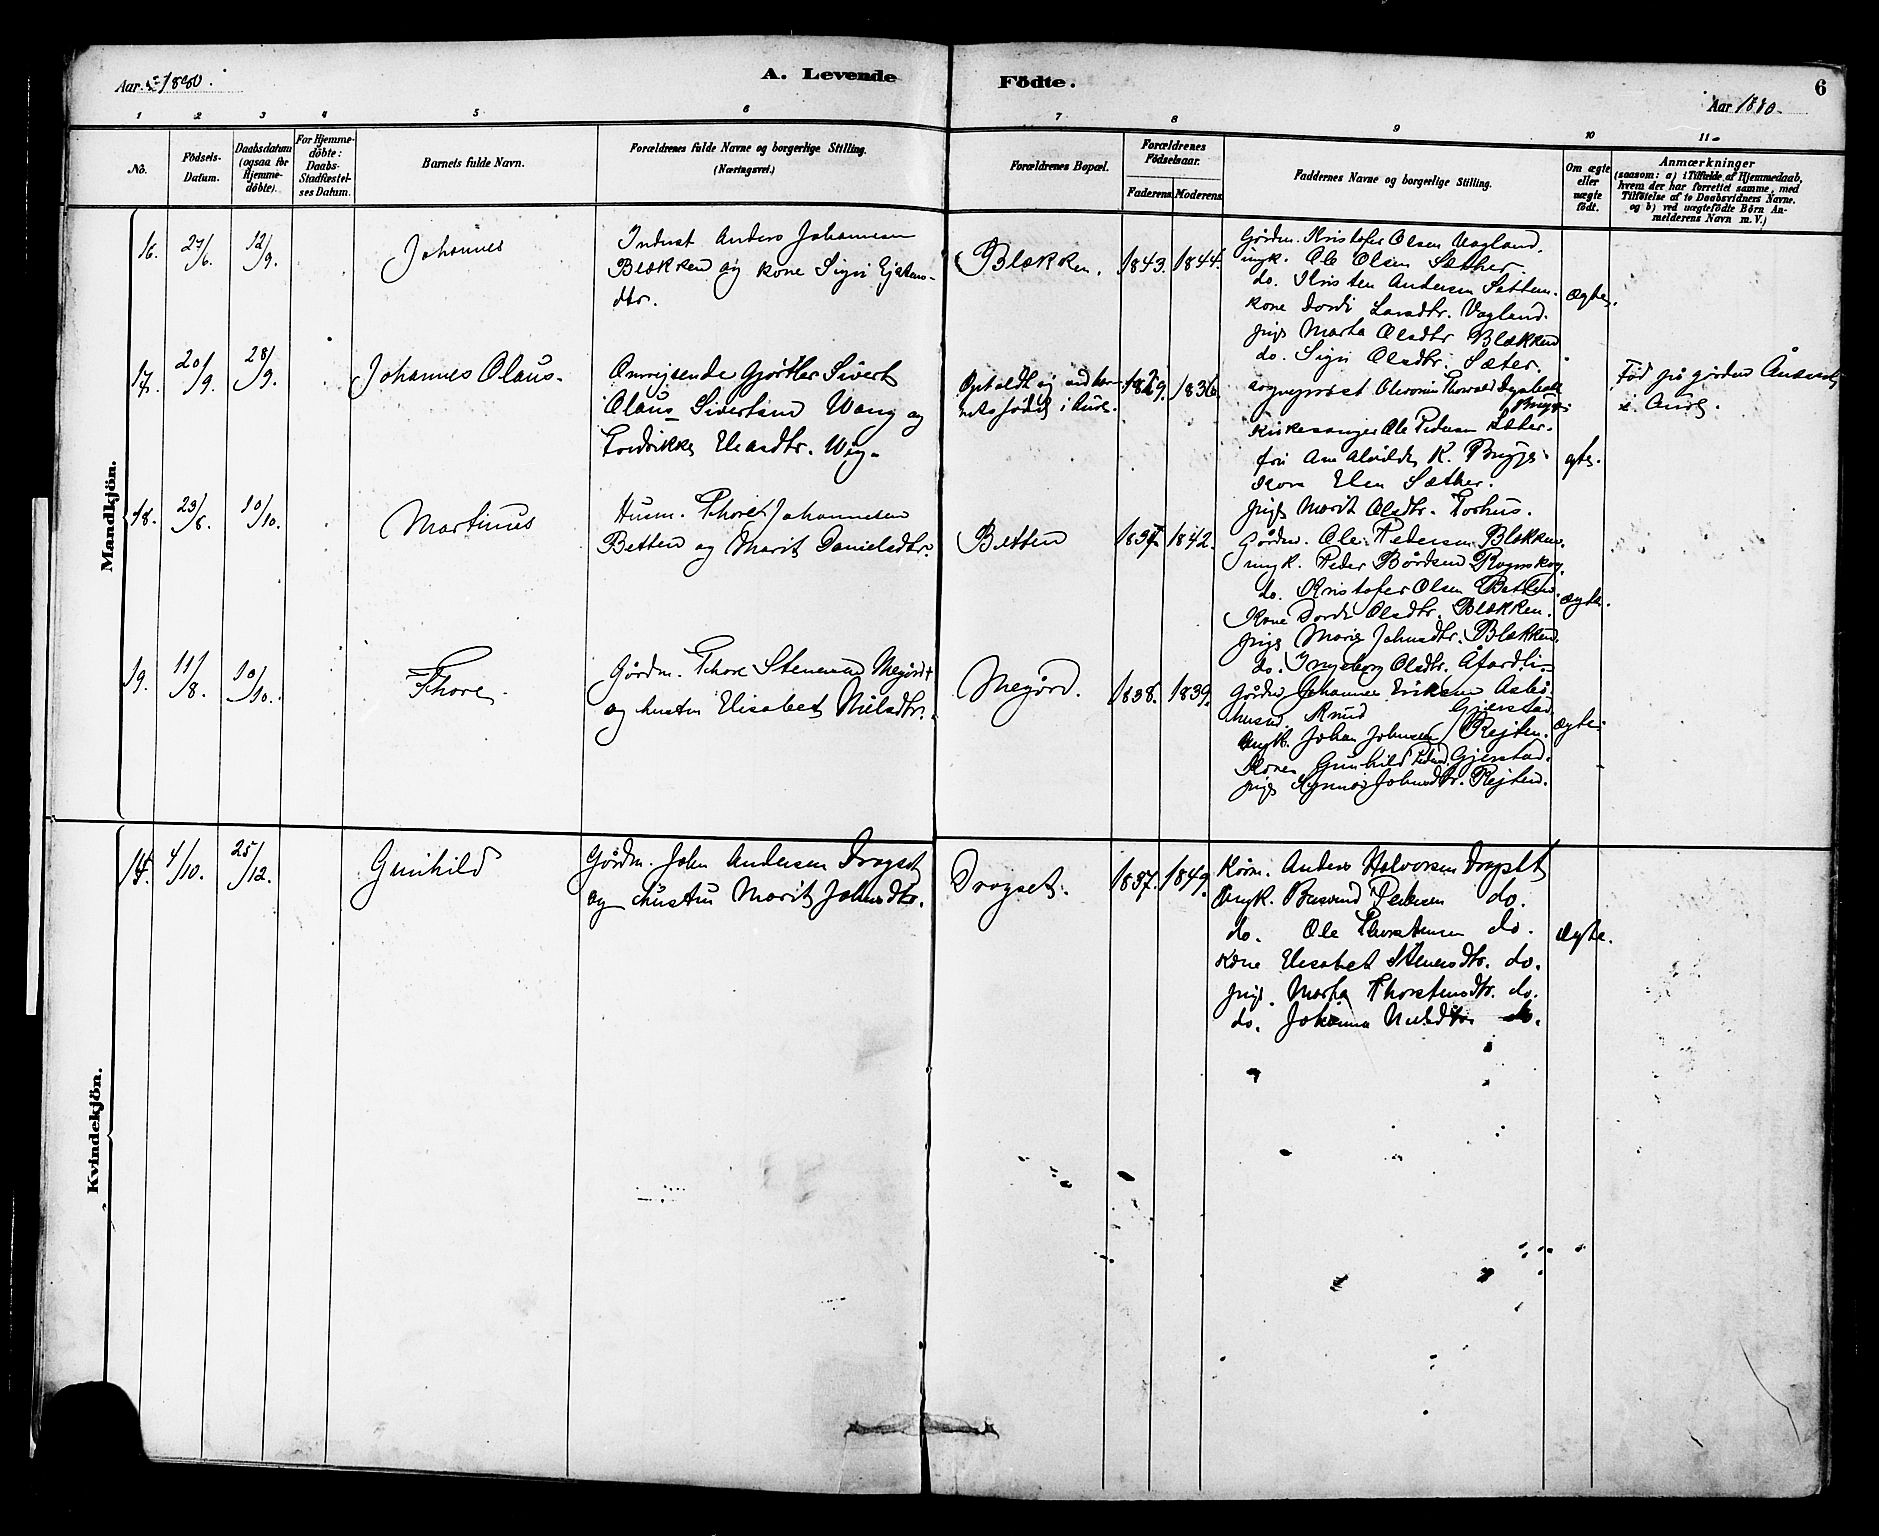 Aar 1880.
A. Levende Födte.
6
Aar 1880.
1 2 3 4 5 6 7 8 9 10 11
No.
Födsels-
Datum.
Daabsdatum
(ogsaa for
Hjemme-
döbte).
For Hjemme-
döbte:
Daabs-
Stadfæstel-
ses Datum.
Barnets fulde Navn.
Forældrenes fulde Navne og borgerlige Stilling.
(Næringsvei.)
Forældrenes Bopæl.
Forældrenes
Födselsaar.
Faderens. Moderens.
Faddernes Navne og borgerlige Stilling.
Om ægte
eller
uægte
födt.
Anmærkninger
(saasom: a) i Tilfælde af Hjemmedaab,
hvem der har forrettet samme, med
Tilföielse af to Daabsvidners Navne.
og b) ved uægtefödte Börn An-
melderens Navn m. V.)
Mandkjön.
16. 27/6. 12/9.
Johannes
Inderst Anders Johannesen
Blækken og kone Sigri
dtr.
Blækken.
1843. 1844.
Gårdm. Kristofer Olsen Vagland.
ungk. Ole Olsen Sæther.
do. Kristen Andersen Settem.
kone Dordi Larsdtr. Vagland.
pige Marta Olsdtr Blækken
do. Sigri Olsdtr. Sæter.
ægte.
17. 20/9. 28/9.
Johannes Olaus.
Omreisende Gjørtler Sivert
Olaus Sivertsen Wang og
Fredrikke Eliasdtr. Wig.
Opholdt sig ved bar-
nets fødsel i Aure.
1829. 1836.
sogneprest Thorvald
Brügge
kirkesanger Ole Pedersen Sæter.
fru Ane K. Brügge
kone Elen Sæther.
pige Marit Olsdtr. Torhus.
ægte.
Fød på gården
i Aure.
18. 23/8. 10/10.
Martinus
Husm. Thore Johannesen
Betten og Marit Danielsdtr.
Betten
1837. 1842.
Gårdm. Ole Pedersen Blækken.
ungk. Peder Bårdsen Rognskog.
do. Kristofer Olsen Betten.
Kone Dordi Olsdtr. Blækken.
pige Marie Johnsdtr. Blækken.
do. Ingeborg Olsdtr. Åfardli.
ægte.
19. 11/8. 10/10.
Thore.
Gårdm. Thore Stenersen Megård
og hustru Elisabet Nilsdtr.
Megård.
1838. 1839.
Gårdm. Johannes Eriksen Asbø.
husm. Knud Gjerstad.
ungk. Johan Johnsen Rejten.
Kone Gunhild Gjerstad.
pige Johnsdtr. Rejten.
ægte.
Kvindekjön.
14. 4/10. 25/12.
Gunhild
Gårdm. John Andersen Dragset
og hustru Marit Johnsdtr.
Dragset.
1837. 1849.
Kårm. Anders Halvorsen Dragset
Ungk. Pedersen do.
do. Ole Thorstensen do.
Kone Elisabet Stenersdtr. do.
pige. Marta Thorstensdtr. do.
do. Johanna Nilsdtr do.
ægte.